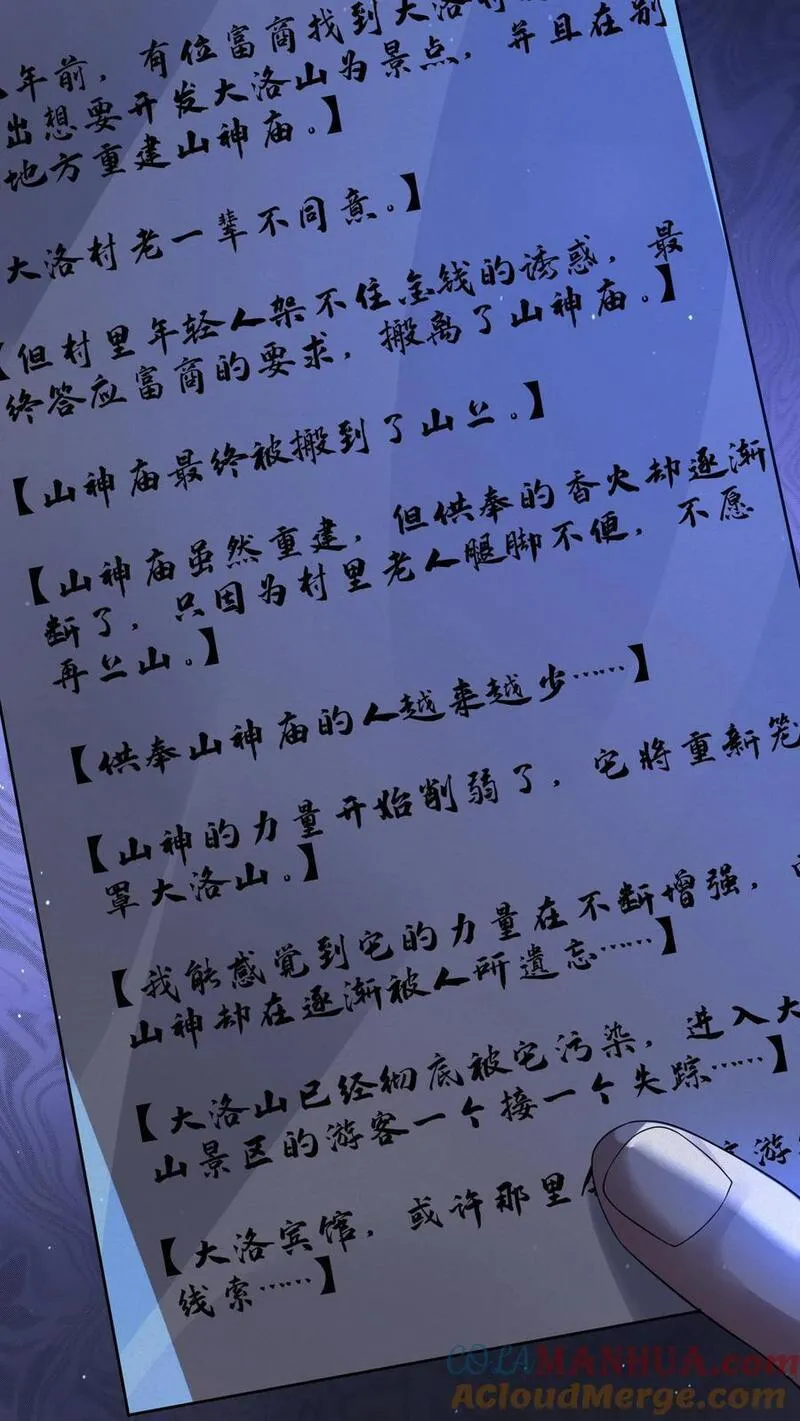 年前，有位富商找到大洛村
出想要开发大洛山为景点，并且在别
地方重建山神庙。】
大洛村老一辈不同意。】
【但村里年轻人架不住金钱的诱惑，最
终答应富商的要求，搬离了山神庙。】
【山神庙最终被搬到了山上。】
【山神庙虽然重建，但供奉的香火却逐渐
断了，只因为村里老人腿脚不便，不愿
再上山。】
【供奉山神庙的人越来越少……】
【山神的力量开始削弱了，它将重新笼
罩大洛山。】
【我能感觉到它的力量在不断增强，
山神却在逐渐被人所遗忘……】
【大洛山已经彻底被它污染，进入大
山景区的游客一个接一个失踪……】
【大洛宾馆，或许那里 游
线索……】
COLAMANHUA.com
ACloudMerge.com